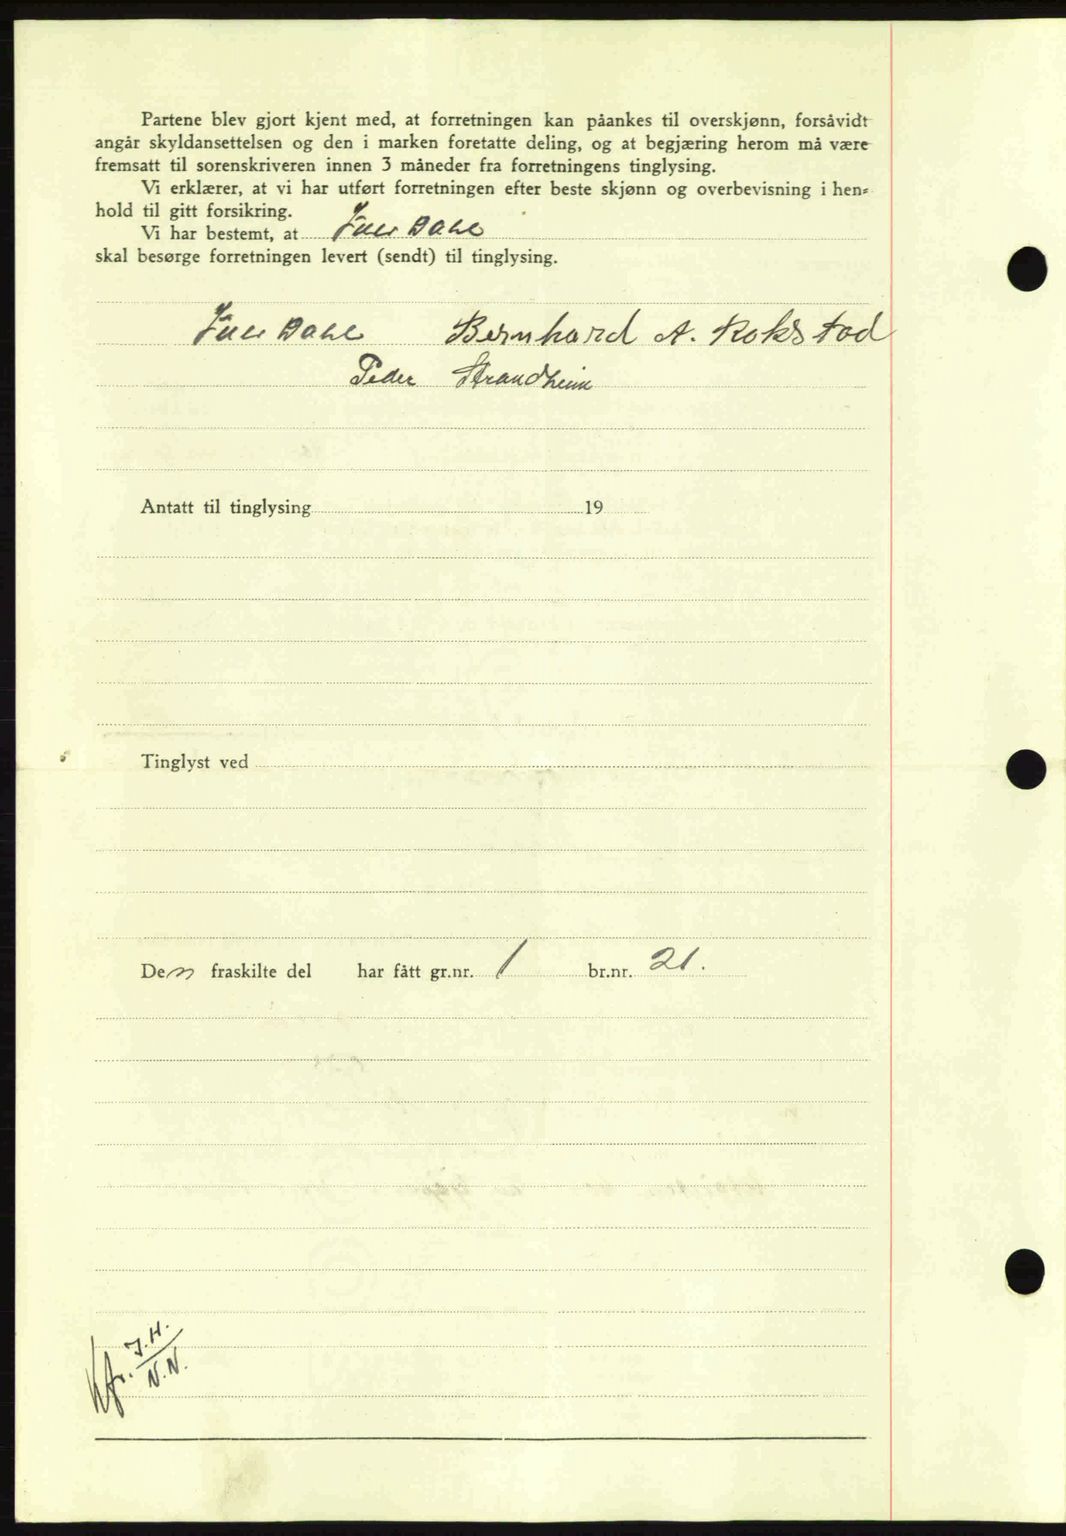 Partene blev gjort kjent med, at forretningen kan påankes til overskjønn, forsåvidt
angår skyldansettelsen og den i marken foretatte deling, og at begjæring herom må være
fremsatt til sorenskriveren innen 3 måneder fra forretningens tinglysing.
Vi erklærer, at vi har utført forretningen efter beste skjønn og overbevisning i hen-
hold til gitt forsikring.
Vi har bestemt, at Dahl
skal besørge forretningen levert (sendt) til tinglysing.
Dahl Bernhard A. Rokstad
Peder Strandheim
Antatt til tinglysing 19
Tinglyst ved
Den fraskilte del har fått gr.nr. 1 br.nr. 21.
Kfr. J.H.
N.N.